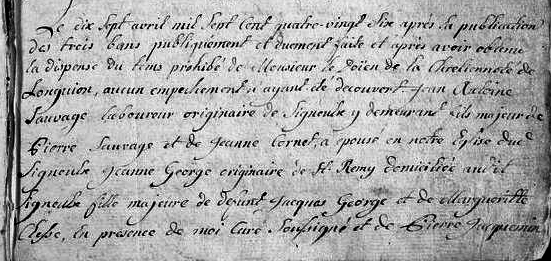 Le dix sept avril mil sept cent quatre-vingt six après la publication
des trois bans publiquement et duement faite et après avoir obtenu
la dispense du tems prohibé de Monsieur le Doïen de la Chretienneté de
Longuion, aucun empechement n'ayant été decouvert Jean Antoine
Sauvage laboureur originaire de Signeulx y demeurant fils majeur de
Pierre Sauvage et de Jeanne Cornet, a épousé en notre Eglise dud
Signeulx Jeanne George originaire de St. Remy domiciliée audit
Signeulx fille majeure de defunt Jacques George et de Margueritte
en presence de moi Curé soussigné et de Pierre Jacquemin